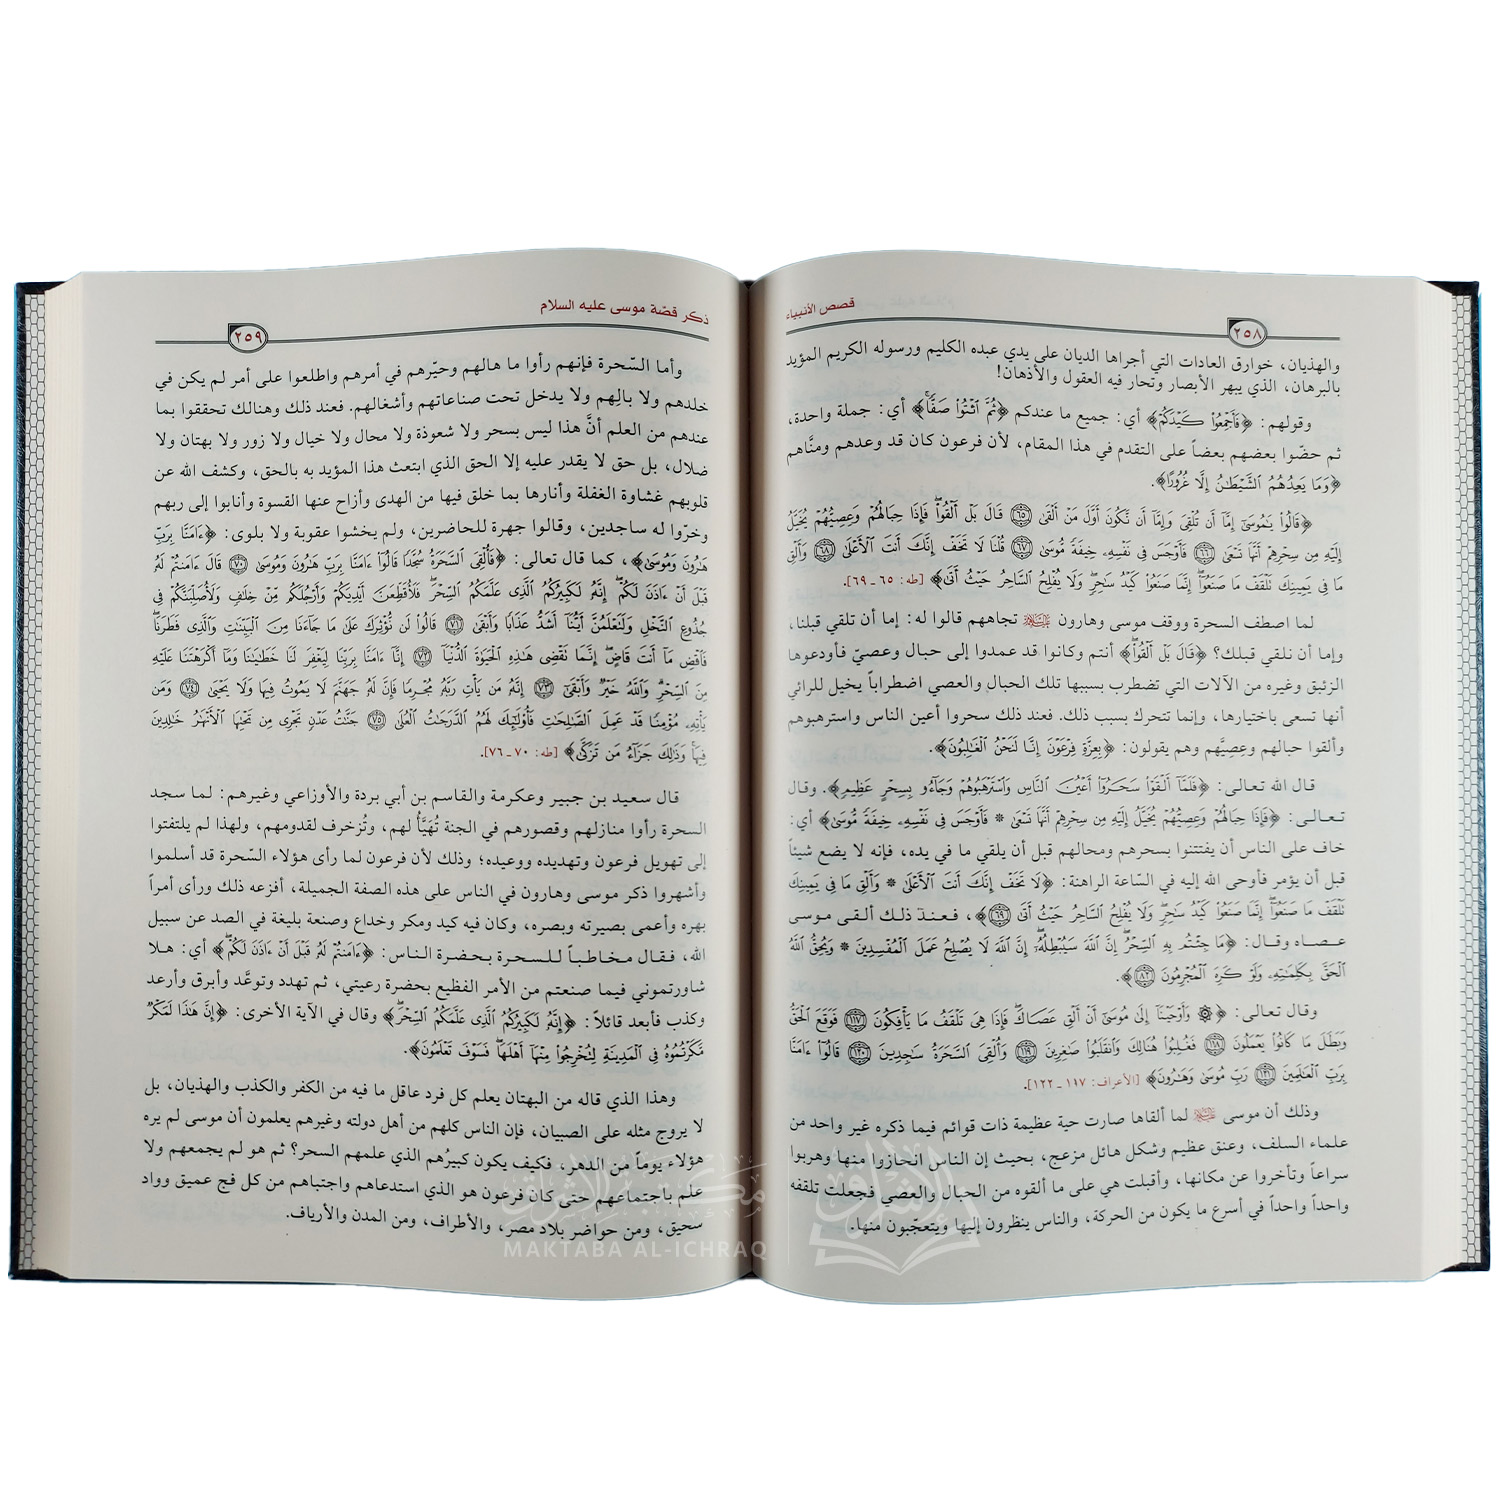 قصص الأنبياء
٢٥٨
والهذيان، خوارق العادات التي أجراها الديان على يدي عبده الكليم ورسوله الكريم المؤيد
بالبرهان، الذي يبهر الأبصار وتحار فيه العقول والأذهان!
وقولهم: ﴿فَأَجْمِعُوا۟ كَيْدَكُمْ﴾ أي: جميع ما عندكم ﴿ثُمَّ ٱئْتُوا۟ صَفًّا﴾ أي: جملة واحدة،
ثم حضّوا بعضهم بعضاً على التقدم في هذا المقام، لأن فرعون كان قد وعدهم ومنَّاهم
﴿وَمَا يَعِدُهُمُ ٱلشَّيْطَـٰنُ إِلَّا غُرُورًا﴾.
﴿قَالُوا۟ يَـٰمُوسَىٰٓ إِمَّآ أَن تُلْقِىَ وَإِمَّآ أَن نَّكُونَ أَوَّلَ مَنْ أَلْقَىٰ ٦٥ قَالَ بَلْ أَلْقُوا۟ ۖ فَإِذَا حِبَالُهُمْ وَعِصِيُّهُمْ يُخَيَّلُ
إِلَيْهِ مِن سِحْرِهِمْ أَنَّهَا تَسْعَىٰ ٦٦ فَأَوْجَسَ فِى نَفْسِهِۦ خِيفَةً مُّوسَىٰ ٦٧ قُلْنَا لَا تَخَفْ إِنَّكَ أَنتَ ٱلْأَعْلَىٰ ٦٨ وَأَلْقِ
مَا فِى يَمِينِكَ تَلْقَفْ مَا صَنَعُوٓا۟ ۖ إِنَّمَا صَنَعُوا۟ كَيْدُ سَـٰحِرٍ ۖ وَلَا يُفْلِحُ ٱلسَّاحِرُ حَيْثُ أَتَىٰ﴾ [طه: ٦٥ ـ ٦٩].
لما اصطف السحرة ووقف موسى وهارون عليهما السلام تجاههم قالوا له: إما أن تلقي قبلنا،
وإما أن نلقي قبلك؟ ﴿قَالَ بَلْ أَلْقُوا۟﴾ أنتم وكانوا قد عمدوا إلى حبال وعصيّ فأودعوها
الزئبق وغيره من الآلات التي تضطرب بسببها تلك الحبال والعصي اضطراباً يخيل للرائي
أنها تسعى باختيارها، وإنما تتحرك بسبب ذلك. فعند ذلك سحروا أعين الناس واسترهبوهم
وألقوا حبالهم وعصيَّهم وهم يقولون: ﴿بِعِزَّةِ فِرْعَوْنَ إِنَّا لَنَحْنُ ٱلْغَـٰلِبُونَ﴾.
قال الله تعالى: ﴿فَلَمَّآ أَلْقَوْا۟ سَحَرُوٓا۟ أَعْيُنَ ٱلنَّاسِ وَٱسْتَرْهَبُوهُمْ وَجَآءُو بِسِحْرٍ عَظِيمٍ﴾. وقال
تعالى: ﴿فَإِذَا حِبَالُهُمْ وَعِصِيُّهُمْ يُخَيَّلُ إِلَيْهِ مِن سِحْرِهِمْ أَنَّهَا تَسْعَىٰ * فَأَوْجَسَ فِى نَفْسِهِۦ خِيفَةً مُّوسَىٰ﴾ أي:
خاف على الناس أن يفتتنوا بسحرهم ومحالهم قبل أن يلقي ما في يده، فإنه لا يضع شيئاً
قبل أن يؤمر فأوحى الله إليه في السّاعة الراهنة: ﴿لَا تَخَفْ إِنَّكَ أَنتَ ٱلْأَعْلَىٰ * وَأَلْقِ مَا فِى يَمِينِكَ
تَلْقَفْ مَا صَنَعُوٓا۟ ۖ إِنَّمَا صَنَعُوا۟ كَيْدُ سَـٰحِرٍ ۖ وَلَا يُفْلِحُ ٱلسَّاحِرُ حَيْثُ أَتَىٰ ٦٩﴾، فعند ذلك ألقى موسى
عصاه وقال: ﴿مَا جِئْتُم بِهِ ٱلسِّحْرُ ۖ إِنَّ ٱللَّهَ سَيُبْطِلُهُۥٓ ۖ إِنَّ ٱللَّهَ لَا يُصْلِحُ عَمَلَ ٱلْمُفْسِدِينَ * وَيُحِقُّ ٱللَّهُ
ٱلْحَقَّ بِكَلِمَـٰتِهِۦ وَلَوْ كَرِهَ ٱلْمُجْرِمُونَ ٨٢﴾.
وقال تعالى: ﴿۞ وَأَوْحَيْنَآ إِلَىٰ مُوسَىٰٓ أَنْ أَلْقِ عَصَاكَ ۖ فَإِذَا هِىَ تَلْقَفُ مَا يَأْفِكُونَ ١١٧ فَوَقَعَ ٱلْحَقُّ
وَبَطَلَ مَا كَانُوا۟ يَعْمَلُونَ ١١٨ فَغُلِبُوا۟ هُنَالِكَ وَٱنقَلَبُوا۟ صَـٰغِرِينَ ١١٩ وَأُلْقِىَ ٱلسَّحَرَةُ سَـٰجِدِينَ ١٢٠ قَالُوٓا۟ ءَامَنَّا
بِرَبِّ ٱلْعَـٰلَمِينَ ١٢١ رَبِّ مُوسَىٰ وَهَـٰرُونَ﴾ [الأعراف: ١١٧ ـ ١٢٢].
وذلك أن موسى عليه السلام لما ألقاها صارت حية عظيمة ذات قوائم فيما ذكره غير واحد من
علماء السلف، وعنق عظيم وشكل هائل مزعج، بحيث إن الناس انحازوا منها وهربوا
سراعاً وتأخروا عن مكانها، وأقبلت هي على ما ألقوه من الحبال والعصي فجعلت تلقفه
واحداً واحداً في أسرع ما يكون من الحركة، والناس ينظرون إليها ويتعجّبون منها.
ذكر قصّة موسى عليه السلام
٢٥٩
وأما السّحرة فإنهم رأوا ما هالهم وحيّرهم في أمرهم واطلعوا على أمر لم يكن في
خلدهم ولا بالِهم ولا يدخل تحت صناعاتهم وأشغالهم. فعند ذلك وهنالك تحققوا بما
عندهم من العلم أنَّ هذا ليس بسحر ولا شعوذة ولا محال ولا خيال ولا زور ولا بهتان ولا
ضلال، بل حق لا يقدر عليه إلا الحق الذي ابتعث هذا المؤيد به بالحق، وكشف الله عن
قلوبهم غشاوة الغفلة وأنارها بما خلق فيها من الهدى وأزاح عنها القسوة وأنابوا إلى ربهم
وخرّوا له ساجدين، وقالوا جهرة للحاضرين، ولم يخشوا عقوبة ولا بلوى: ﴿ءَامَنَّا بِرَبِّ
هَـٰرُونَ وَمُوسَىٰ﴾، كما قال تعالى: ﴿فَأُلْقِىَ ٱلسَّحَرَةُ سُجَّدًا قَالُوٓا۟ ءَامَنَّا بِرَبِّ هَـٰرُونَ وَمُوسَىٰ ٧٠ قَالَ ءَامَنتُمْ لَهُۥ
قَبْلَ أَنْ ءَاذَنَ لَكُمْ ۖ إِنَّهُۥ لَكَبِيرُكُمُ ٱلَّذِى عَلَّمَكُمُ ٱلسِّحْرَ ۖ فَلَأُقَطِّعَنَّ أَيْدِيَكُمْ وَأَرْجُلَكُم مِّنْ خِلَـٰفٍ وَلَأُصَلِّبَنَّكُمْ فِى
جُذُوعِ ٱلنَّخْلِ وَلَتَعْلَمُنَّ أَيُّنَآ أَشَدُّ عَذَابًا وَأَبْقَىٰ ٧١ قَالُوا۟ لَن نُّؤْثِرَكَ عَلَىٰ مَا جَآءَنَا مِنَ ٱلْبَيِّنَـٰتِ وَٱلَّذِى فَطَرَنَا ۖ
فَٱقْضِ مَآ أَنتَ قَاضٍ ۖ إِنَّمَا تَقْضِى هَـٰذِهِ ٱلْحَيَوٰةَ ٱلدُّنْيَآ ٧٢ إِنَّآ ءَامَنَّا بِرَبِّنَا لِيَغْفِرَ لَنَا خَطَـٰيَـٰنَا وَمَآ أَكْرَهْتَنَا عَلَيْهِ
مِنَ ٱلسِّحْرِ ۗ وَٱللَّهُ خَيْرٌ وَأَبْقَىٰٓ ٧٣ إِنَّهُۥ مَن يَأْتِ رَبَّهُۥ مُجْرِمًا فَإِنَّ لَهُۥ جَهَنَّمَ لَا يَمُوتُ فِيهَا وَلَا يَحْيَىٰ ٧٤ وَمَن
يَأْتِهِۦ مُؤْمِنًا قَدْ عَمِلَ ٱلصَّـٰلِحَـٰتِ فَأُو۟لَـٰٓئِكَ لَهُمُ ٱلدَّرَجَـٰتُ ٱلْعُلَىٰ ٧٥ جَنَّـٰتُ عَدْنٍ تَجْرِى مِن تَحْتِهَا ٱلْأَنْهَـٰرُ خَـٰلِدِينَ
فِيهَا ۚ وَذَٰلِكَ جَزَآءُ مَن تَزَكَّىٰ﴾ [طه: ٧٠ ـ ٧٦].
قال سعيد بن جبير وعكرمة والقاسم بن أبي بردة والأوزاعي وغيرهم: لما سجد
السحرة رأوا منازلهم وقصورهم في الجنة تُهَيَّأُ لهم، وتُزخرف لقدومهم، ولهذا لم يلتفتوا
إلى تهويل فرعون وتهديده ووعيده؛ وذلك لأن فرعون لما رأى هؤلاء السّحرة قد أسلموا
وأشهروا ذكر موسى وهارون في الناس على هذه الصفة الجميلة، أفزعه ذلك ورأى أمراً
بهره وأعمى بصيرته وبصره، وكان فيه كيد ومكر وخداع وصنعة بليغة في الصد عن سبيل
الله، فقال مخاطباً للسحرة بحضرة الناس: ﴿ءَامَنتُمْ لَهُۥ قَبْلَ أَنْ ءَاذَنَ لَكُمْ ۖ﴾ أي: هلا
شاورتموني فيما صنعتم من الأمر الفظيع بحضرة رعيتي، ثم تهدد وتوعَّد وأبرق وأرعد
وكذب فأبعد قائلاً: ﴿إِنَّهُۥ لَكَبِيرُكُمُ ٱلَّذِى عَلَّمَكُمُ ٱلسِّحْرَ ۖ﴾ وقال في الآية الأخرى: ﴿إِنَّ هَـٰذَا لَمَكْرٌ
مَّكَرْتُمُوهُ فِى ٱلْمَدِينَةِ لِتُخْرِجُوا۟ مِنْهَآ أَهْلَهَا ۖ فَسَوْفَ تَعْلَمُونَ﴾.
وهذا الذي قاله من البهتان يعلم كل فرد عاقل ما فيه من الكفر والكذب والهذيان، بل
لا يروج مثله على الصبيان، فإن الناس كلهم من أهل دولته وغيرهم يعلمون أن موسى لم يره
هؤلاء يوماً من الدهر، فكيف يكون كبيرُهم الذي علمهم السحر؟ ثم هو لم يجمعهم ولا
علم باجتماعهم حتى كان فرعون هو الذي استدعاهم واجتباهم من كل فج عميق وواد
سحيق، ومن حواضر بلاد مصر، والأطراف، ومن المدن والأرياف.
مكتبة الإشراق
MAKTABA AL-ICHRAQ
الإشراق